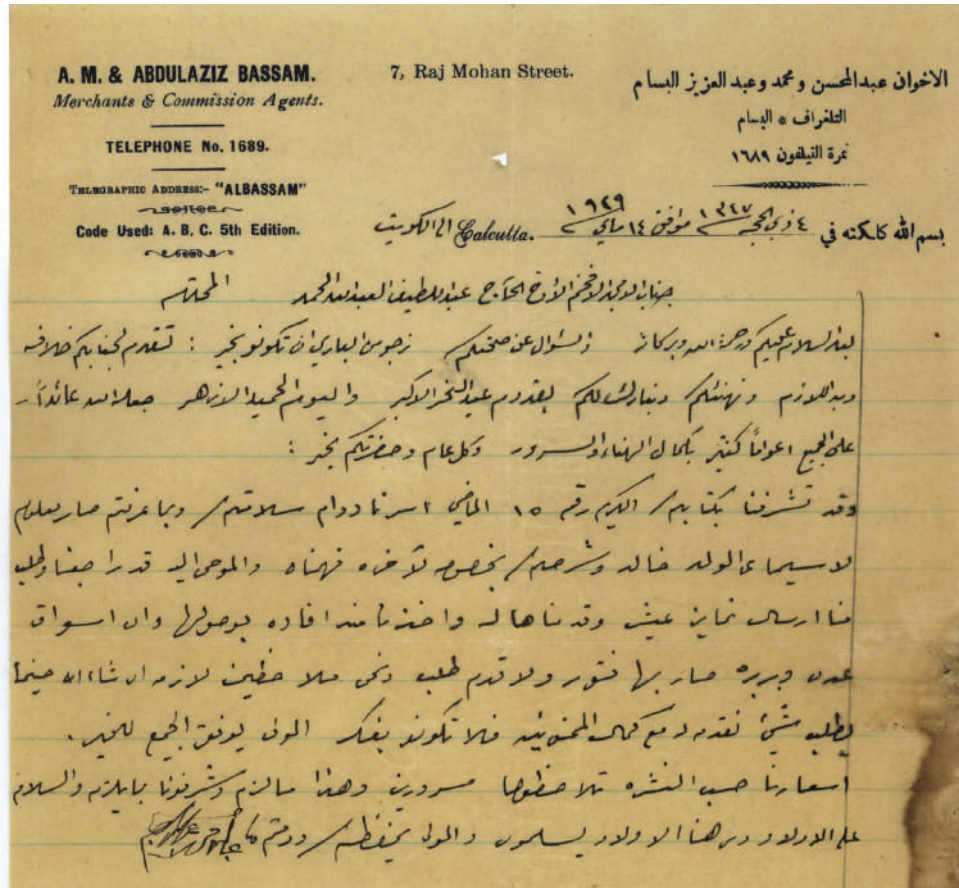 A. M. & ABDULAZIZ BASSAM.
Merchants & Commission Agents.
TELEPHONE No. 1689.
TELEGRAPHIC ADDRESS:- "ALBASSAM"
Code Used: A. B, C. 5th Edition.
7, Raj Mohan Street.
الاخوان عبدالمحسن ومحمد وعبد العزيز البسام
التلغراف * البسام
نمرة التيلفون ١٦٨٩
بسم الله كلكته في ٤ ذي الحجه ١٣٤٧ موافق ١٤ ماي ١٩٢٩ Calcutta. الى الكويت
جناب الاجل الافخم الأخ الحاج عبداللطيف العبدالله الحمد المحترم
بعد السلام عليكم ورحمة الله وبركاته والسؤال عن صحتكم نرجو من الباري ان تكونو بخير : تقدم لجنابكم خلافه
وبه اللازم ونهنئكم ونبارك لكم بقدوم عيد النحر الاكبر واليوم الحميد الازهر جعله الله عائداً
على الجميع اعواماً كثير بكمال الهناء والسرور وكل عام وحضرتكم بخير :
وقد تشرفنا بكتابكم الكريم رقم ١٥ الماضي اسرنا دوام سلامتكم وبما عرفتم صار معلوم
لاسيما عن الولد خالد وشرحكم بخصوص لآخره فهمناه والموحى اليه قد راجعنا وطلب
منا ارسال عيش وقدمناها له واخذنا منه افاده بوصولها وان اسواق
عدن وبربره صار بها فتور ولا قدم طلب ونحن ملاحظين لازمه ان شاء الله حينما
يطلب شيئ نقدمه له مع كمال الممنونيه فلا تكونو بفكر المولى يوفق الجميع للخير .
اسعارنا حسب النشره تلاحظوها مسرورين وهذا مالزم وشرفونا بما يلزم والسلام
على الاولاد ومن هنا الاولاد يسلمون والمولى يحفظكم ودمتم